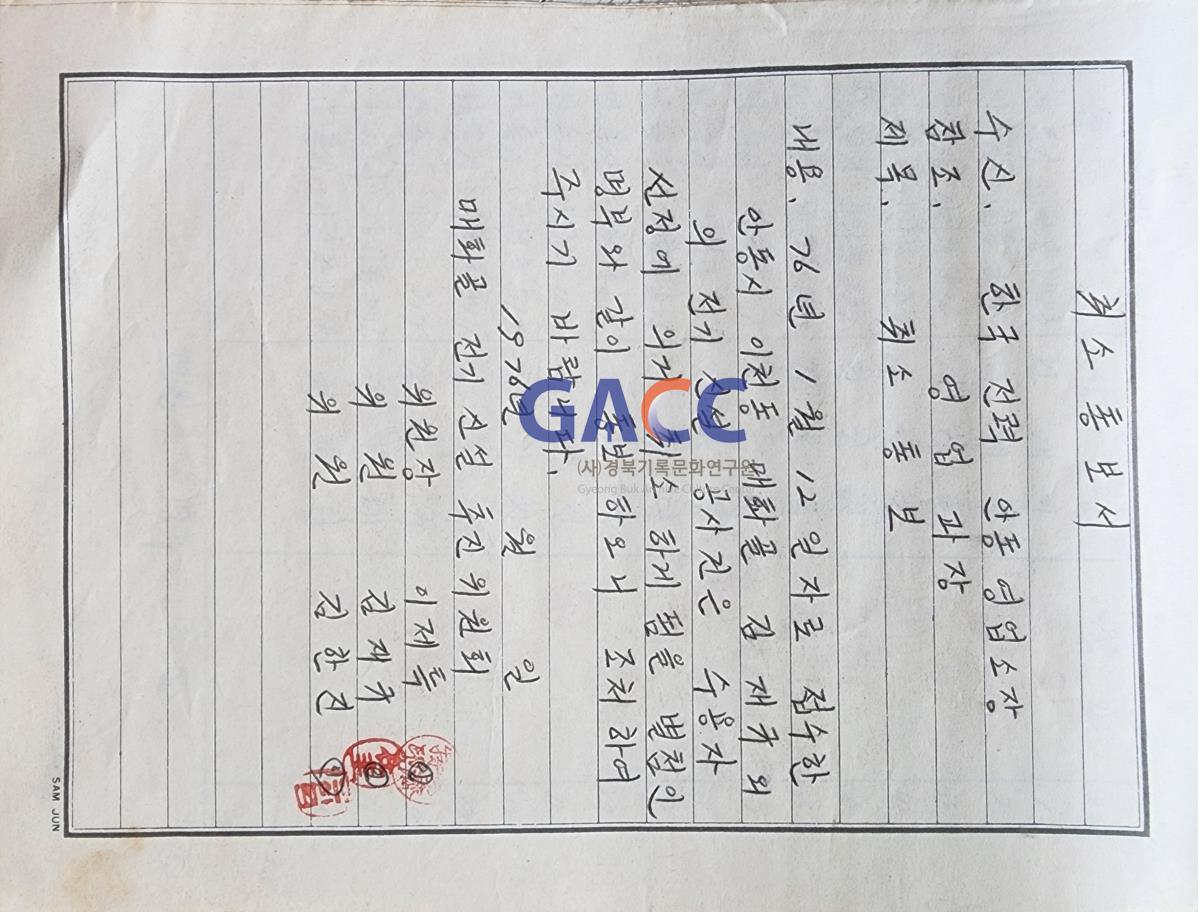 취소통보서
수신, 한국전력 안동영업소장
참조, 영업과장
제목, 취소통보
내용, 76년 1월 12일자로 접수한
안동시 이천동 매화골 김재규외
의 전기신설 공사건은 수용자
선정에 의거 취소하게 됨을 별첨인
명부와 같이 통보하오니 조처하여
주시기 바랍니다.
1976년 월 일
매화골 전기신설 추진위원회
위원장 이제특
위원 김재규
위원 김한진
GACC
(사)경북기록문화연구원
Gyeong Buk Archive Culture Center
SAM JUN